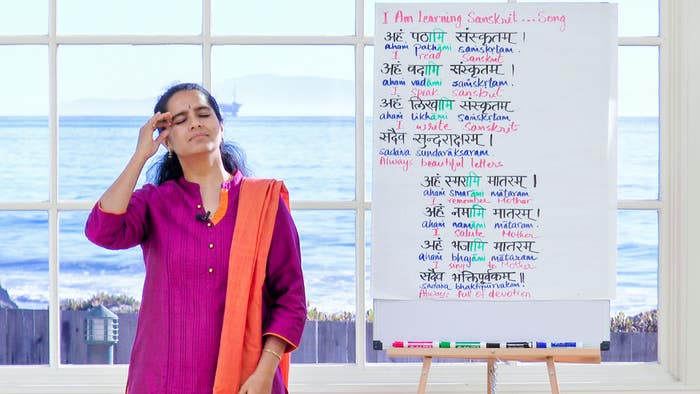 I Am Learning Sanskrit ... Song
अहं पठामि संस्कृतम् ।
aham paṭhāmi saṁskṛtam.
I read Sanskrit
अहं वदामि संस्कृतम् ।
aham vadāmi saṁskṛtam.
I speak sanskrit
अहं लिखामि संस्कृतम् ।
aham likhāmi saṁskṛtam.
I write sanskrit
सदैव सुन्दराक्षरम् ।
sadaiva sundarākṣaram.
Always beautiful letters
अहं स्मरामि मातरम् ।
aham smarāmi mātaram.
I remember Mother
अहं नमामि मातरम् ।
aham namāmi mātaram.
I salute Mother
अहं भजामि मातरम् ।
aham bhajāmi mātaram.
I sing to Mother
सदैव भक्तिपूर्वकम् ॥
sadaiva bhaktipūrvakam.
Always full of devotion